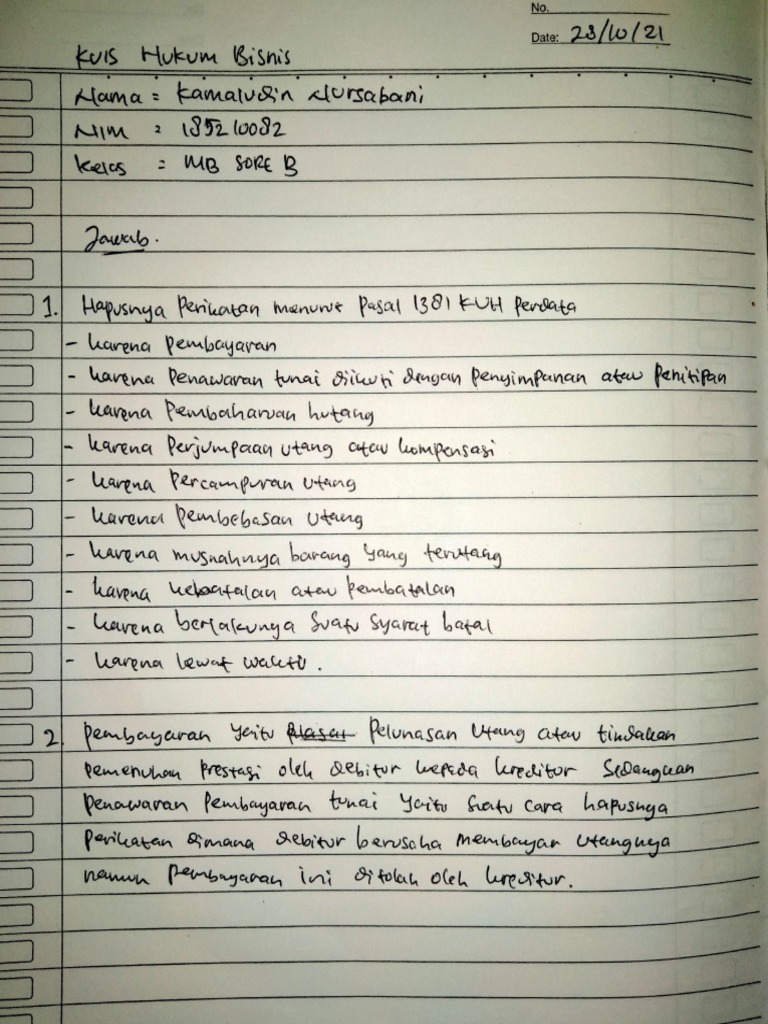 No.
Date: 23/10/21
Kuis Hukum Bisnis
Nama = Kamaludin Nursabani
NIM : 185210082
Kelas : MB SORE B
Jawab.
1. Hapusnya Perikatan menurut Pasal 1381 KUH Perdata
- karena pembayaran
- karena Penawaran tunai diikuti dengan penyimpanan atau penitipan
- karena Pembaharuan hutang
- karena Perjumpaan utang atau kompensasi
- karena Percampuran utang
- karena Pembebasan utang
- karena musnahnya barang yang terutang
- karena kebatalan atau pembatalan
- karena berlakunya suatu syarat batal
- karena lewat waktu.
2. pembayaran yaitu Pelunasan Utang atau tindakan
pemenuhan prestasi oleh debitur kepada kreditur Sedangkan
penawaran Pembayaran tunai yaitu suatu cara hapusnya
perikatan dimana debitur berusaha membayar utangnya
namun pembayaran ini ditolak oleh kreditur.